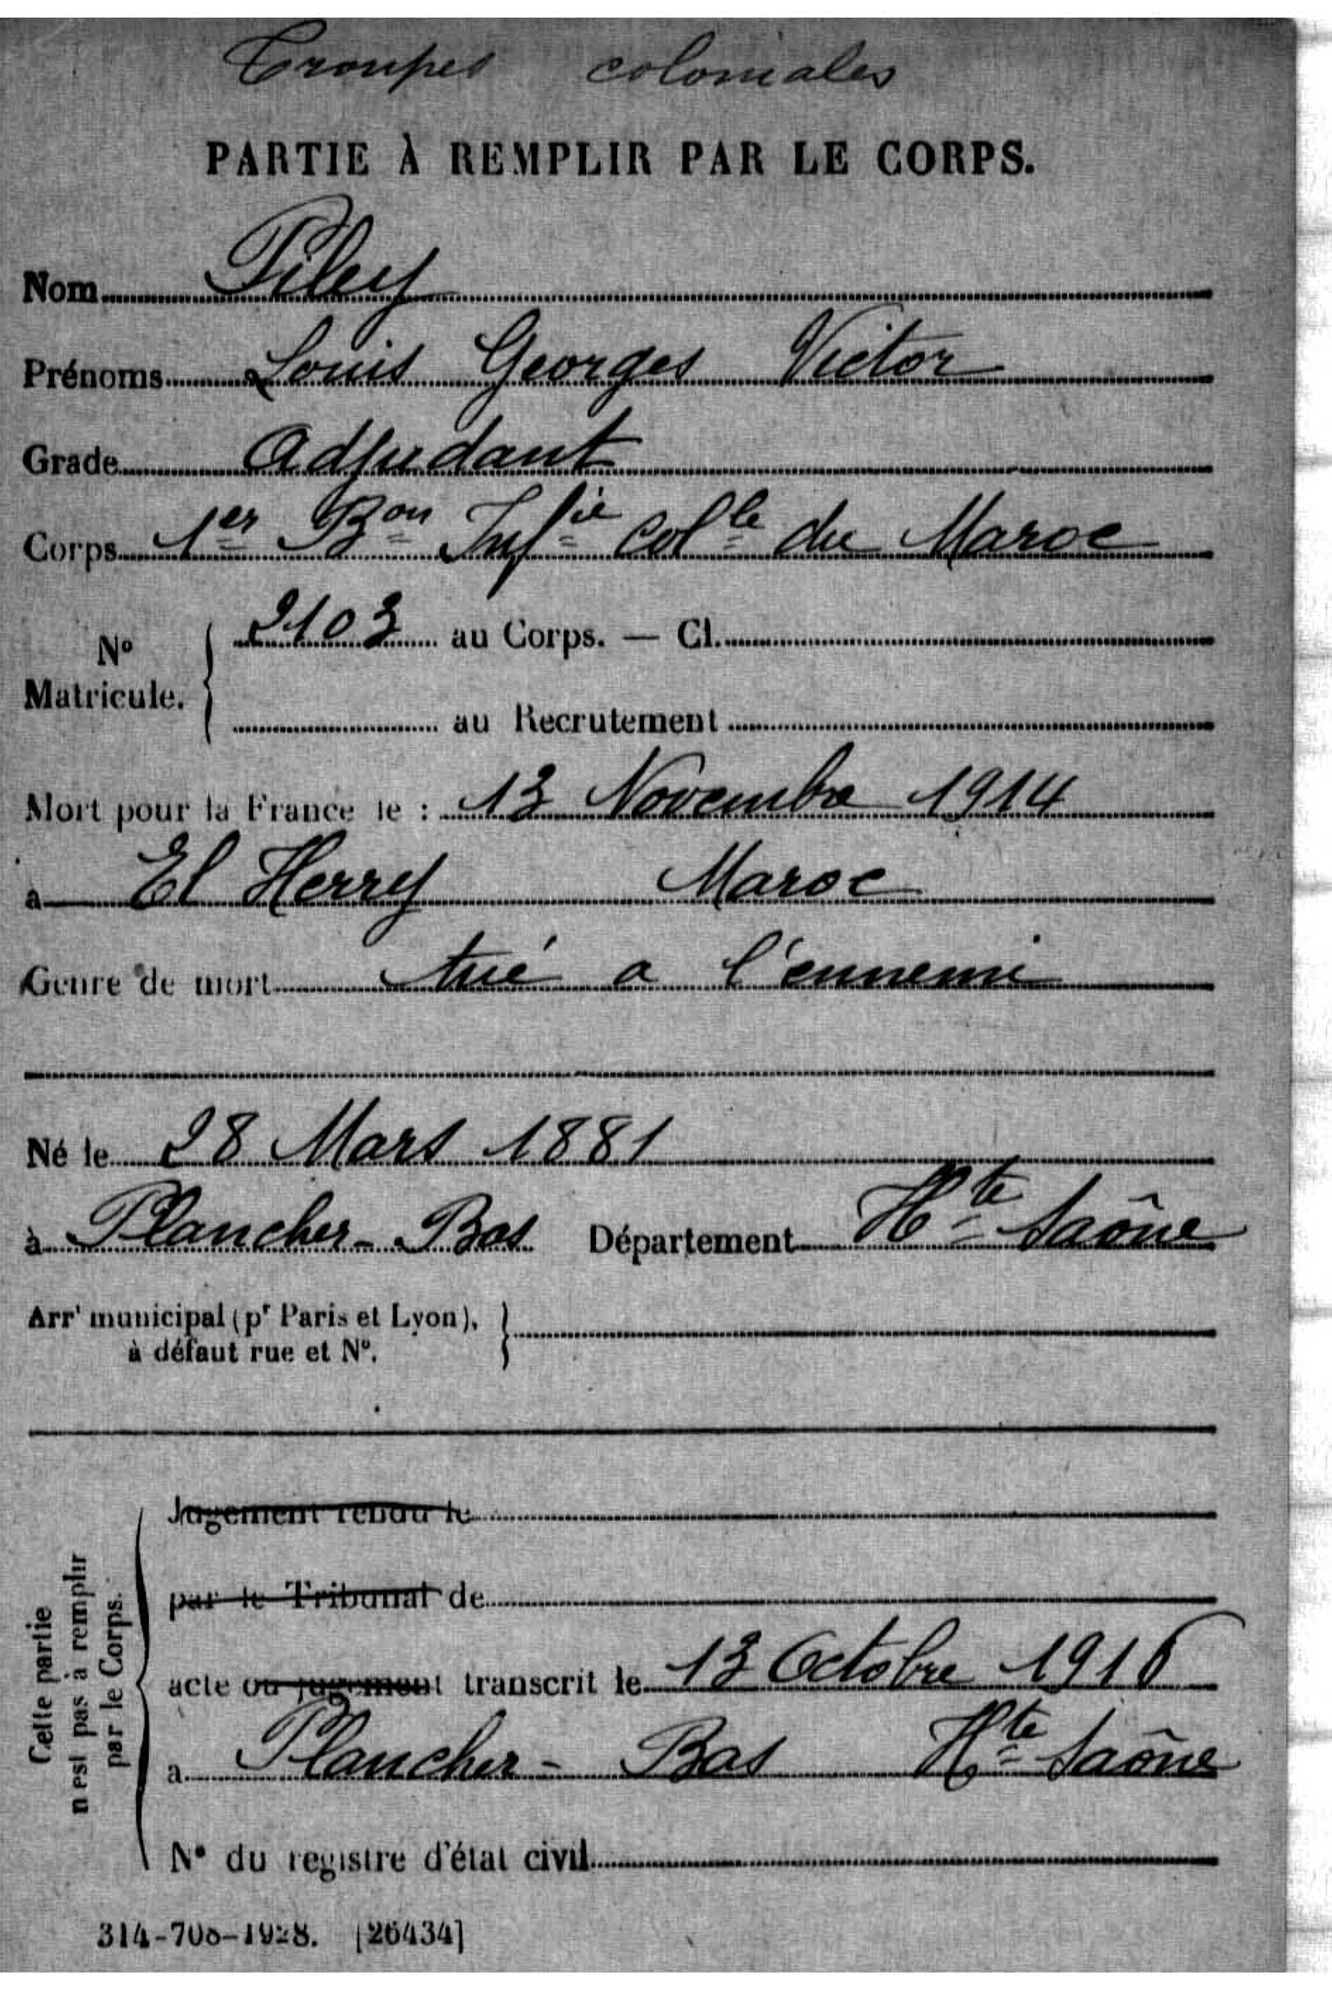 Troupes coloniales
PARTIE À REMPLIR PAR LE CORPS.
Nom Piley
Prénoms Louis Georges Victor
Grade Adjudant
Corps 1er Bon Infie colle du Maroc
No Matricule. 2103 au Corps. — Cl.
au Recrutement
Mort pour la France le : 13 Novembre 1914
à El Herry Maroc
Genre de mort tué a l'ennemi
Né le 28 Mars 1881
à Plancher-Bas Département Hte Saône
Arrt municipal (pr Paris et Lyon),
à défaut rue et No.
Cette partie
n'est pas à remplir
par le Corps.
Jugement rendu le
par le Tribunal de
acte ou jugement transcrit le 13 Octobre 1916
à Plancher-Bas Hte Saône
No du registre d'état civil
314-708-1928. [26434]